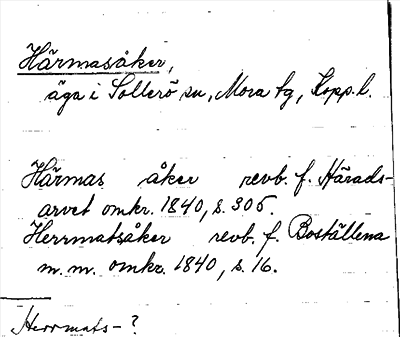 Härmasåker,
äga i Sollerö sn, Mora tg, Kopp. l.
Härmas åker revb. f. Härads-
arvet omkr. 1840, s. 305.
Herrmatsåker revb. f. Boställena
m. m. omkr. 1840, s. 16.
Herrmats-?